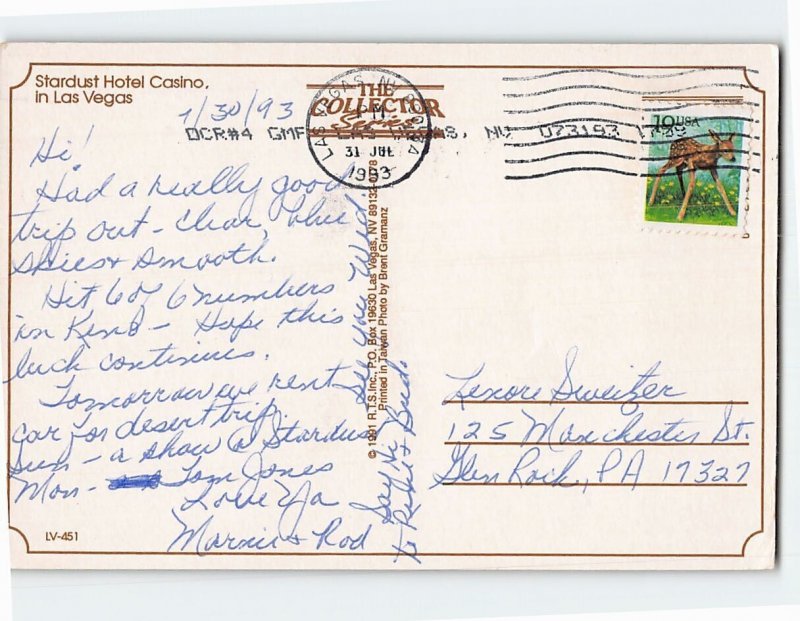 Stardust Hotel Casino,
in Las Vegas
7/30/93
Hi!
Had a really good
trip out - clear, blue
skies & smooth.
Hit 6 of 6 numbers
in Keno - Hope this
luck continues.
Tomorrow we rent
car for desert trip.
Sun - a show @ Stardust
Mon - Tom Jones
Love Ya
Marnie & Rod
See you Wed.
Say Hi
to & Bud.
LV-451
THE
COLLECTOR
Series
© 1991 R.T.S. Inc., P.O. Box 19630 Las Vegas, NV 89132
Printed in Taiwan Photo by Brent Gramanz
OCR#4 GMF LAS VEGAS, NV 073193
LAS VEGAS NV
PM
31 JUL
1993
19 USA
Lenore Sweitzer
125 Manchester St.
Glen Rock, PA 17327